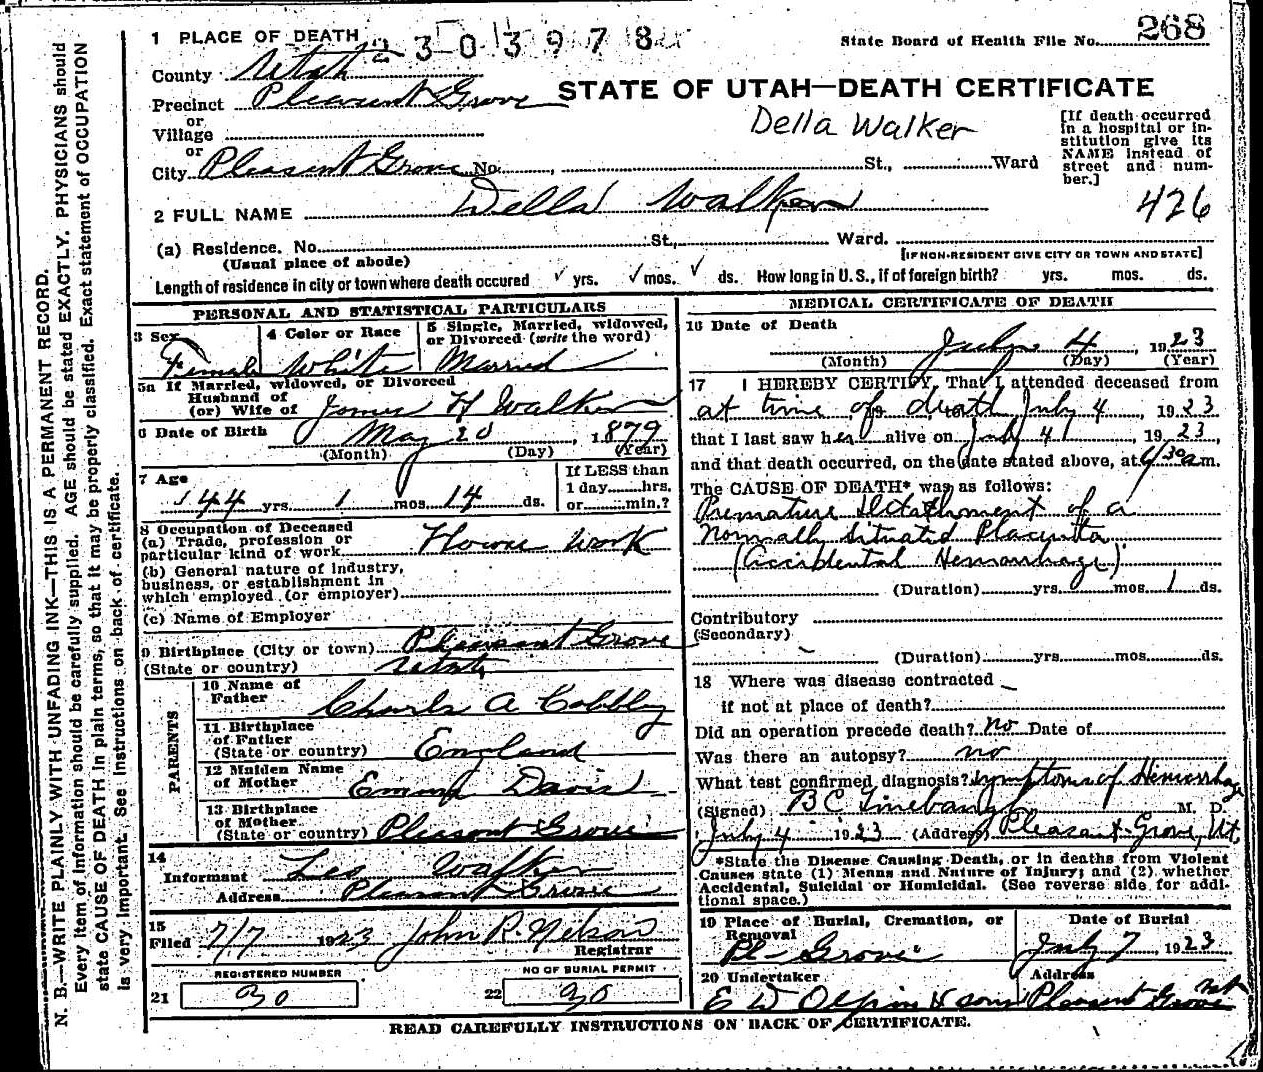 1 PLACE OF DEATH 2303978
State Board of Health File No. 268
County Utah
STATE OF UTAH—DEATH CERTIFICATE
Precinct Pleasant Grove
or
Village
or
Della Walker
[If death occurred in a hospital or institution give its NAME instead of street and number.]
City Pleasant Grove No. , St., Ward
426
2 FULL NAME Della Walker
(a) Residence. No. St., Ward.
(Usual place of abode) [IF NON-RESIDENT GIVE CITY OR TOWN AND STATE]
Length of residence in city or town where death occured ✓ yrs. ✓ mos. ✓ ds. How long in U.S., if of foreign birth? yrs. mos. ds.
PERSONAL AND STATISTICAL PARTICULARS
3 Sex Female
4 Color or Race White
5 Single, Married, widowed, or Divorced (write the word) Married
5a If Married, widowed, or Divorced
Husband of
(or) Wife of James H Walker
6 Date of Birth May 20, 1879
(Month) (Day) (Year)
7 Age 44 yrs. 1 mos. 14 ds.
If LESS than
1 day hrs.
or min.?
8 Occupation of Deceased
(a) Trade, profession or
particular kind of work House Work
(b) General nature of industry,
business, or establishment in
which employed (or employer)
(c) Name of Employer
9 Birthplace (City or town) Pleasant Grove
(State or country) Utah
PARENTS
10 Name of
Father Charles A Cobbley
11 Birthplace
of Father
(State or country) England
12 Maiden Name
of Mother Emma Davis
13 Birthplace
of Mother
(State or country) Pleasant Grove
14
Informant Leo Walker
Address Pleasant Grove
15
Filed 7/7 1923 John P. Nelson
Registrar
REGISTERED NUMBER
21 30
NO OF BURIAL PERMIT
22 30
MEDICAL CERTIFICATE OF DEATH
16 Date of Death
July 4, 1923
(Month) (Day) (Year)
17 I HEREBY CERTIFY, That I attended deceased from
at time of death July 4, 1923
that I last saw her alive on July 4, 1923,
and that death occurred, on the date stated above, at 30 a.m.
The CAUSE OF DEATH* was as follows:
Premature Detachment of a
Normally Situated Placenta
(Accidental Hemorrhage)
(Duration) yrs. mos. 1 ds.
Contributory
(Secondary)
(Duration) yrs. mos. ds.
18 Where was disease contracted
if not at place of death?
Did an operation precede death? no Date of
Was there an autopsy? no
What test confirmed diagnosis? Symptoms of Hemorrhage
(Signed) B C Linebaugh M. D.
July 4 1923 (Address) Pleasant Grove, Ut.
*State the Disease Causing Death, or in deaths from Violent
Causes state (1) Means and Nature of Injury; and (2) whether
Accidental, Suicidal or Homicidal. (See reverse side for addi-
tional space.)
19 Place of Burial, Cremation, or
Removal
Pl- Grove
Date of Burial
July 7, 1923
20 Undertaker
E W Olpin & sons
Address
Pleasant Grove Ut
READ CAREFULLY INSTRUCTIONS ON BACK OF CERTIFICATE.
N. B.—WRITE PLAINLY WITH UNFADING INK—THIS IS A PERMANENT RECORD.
Every item of information should be carefully supplied. AGE should be stated EXACTLY. PHYSICIANS should
state CAUSE OF DEATH in plain terms, so that it may be properly classified. Exact statement of OCCUPATION
is very important. See instructions on back of certificate.